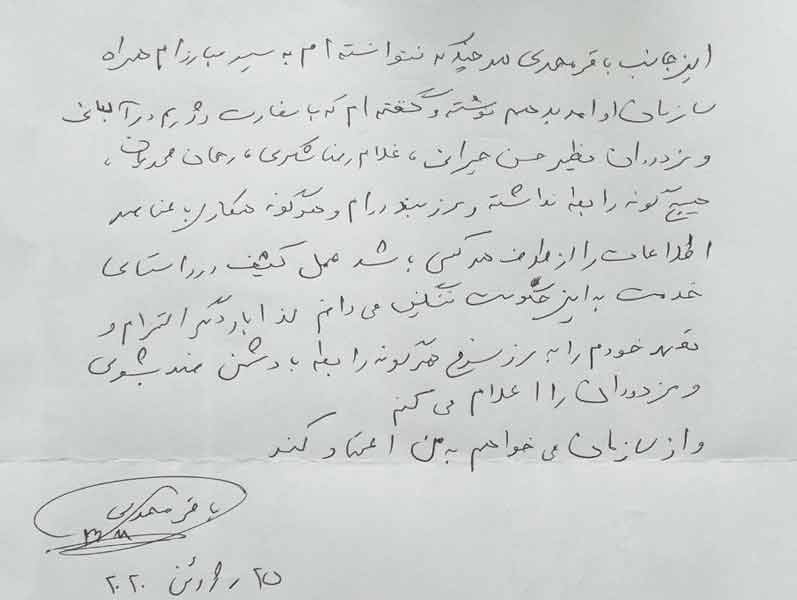 اینجانب باقر محمدی هر چند که نتوانسته ام به مسیر مبارزام همراه
سازمان ادامه بدهم نوشته و گفته ام که با سفارت رژیم در آلبانی
و مزدوران نظیر حسن حیرانی، غلامرضا شکری، رحمان محمدیان،
هیچ گونه رابطه نداشته و مرزبندی دارم و هر گونه همکاری با عناصر
اطلاعات را از طرف هر کس باشد عمل کثیف در راستای
خدمت به این حکومت ننگین می دانم لذا بار دیگر التزام و
تعهد خودم را به مرز سرخ هر گونه رابطه با دشمن ضد بشری
و مزدوران را اعلام می کنم
و از سازمان می خواهم به من اعتماد کند
باقر محمدی
۲۵ ژوئن ۲۰۲۰